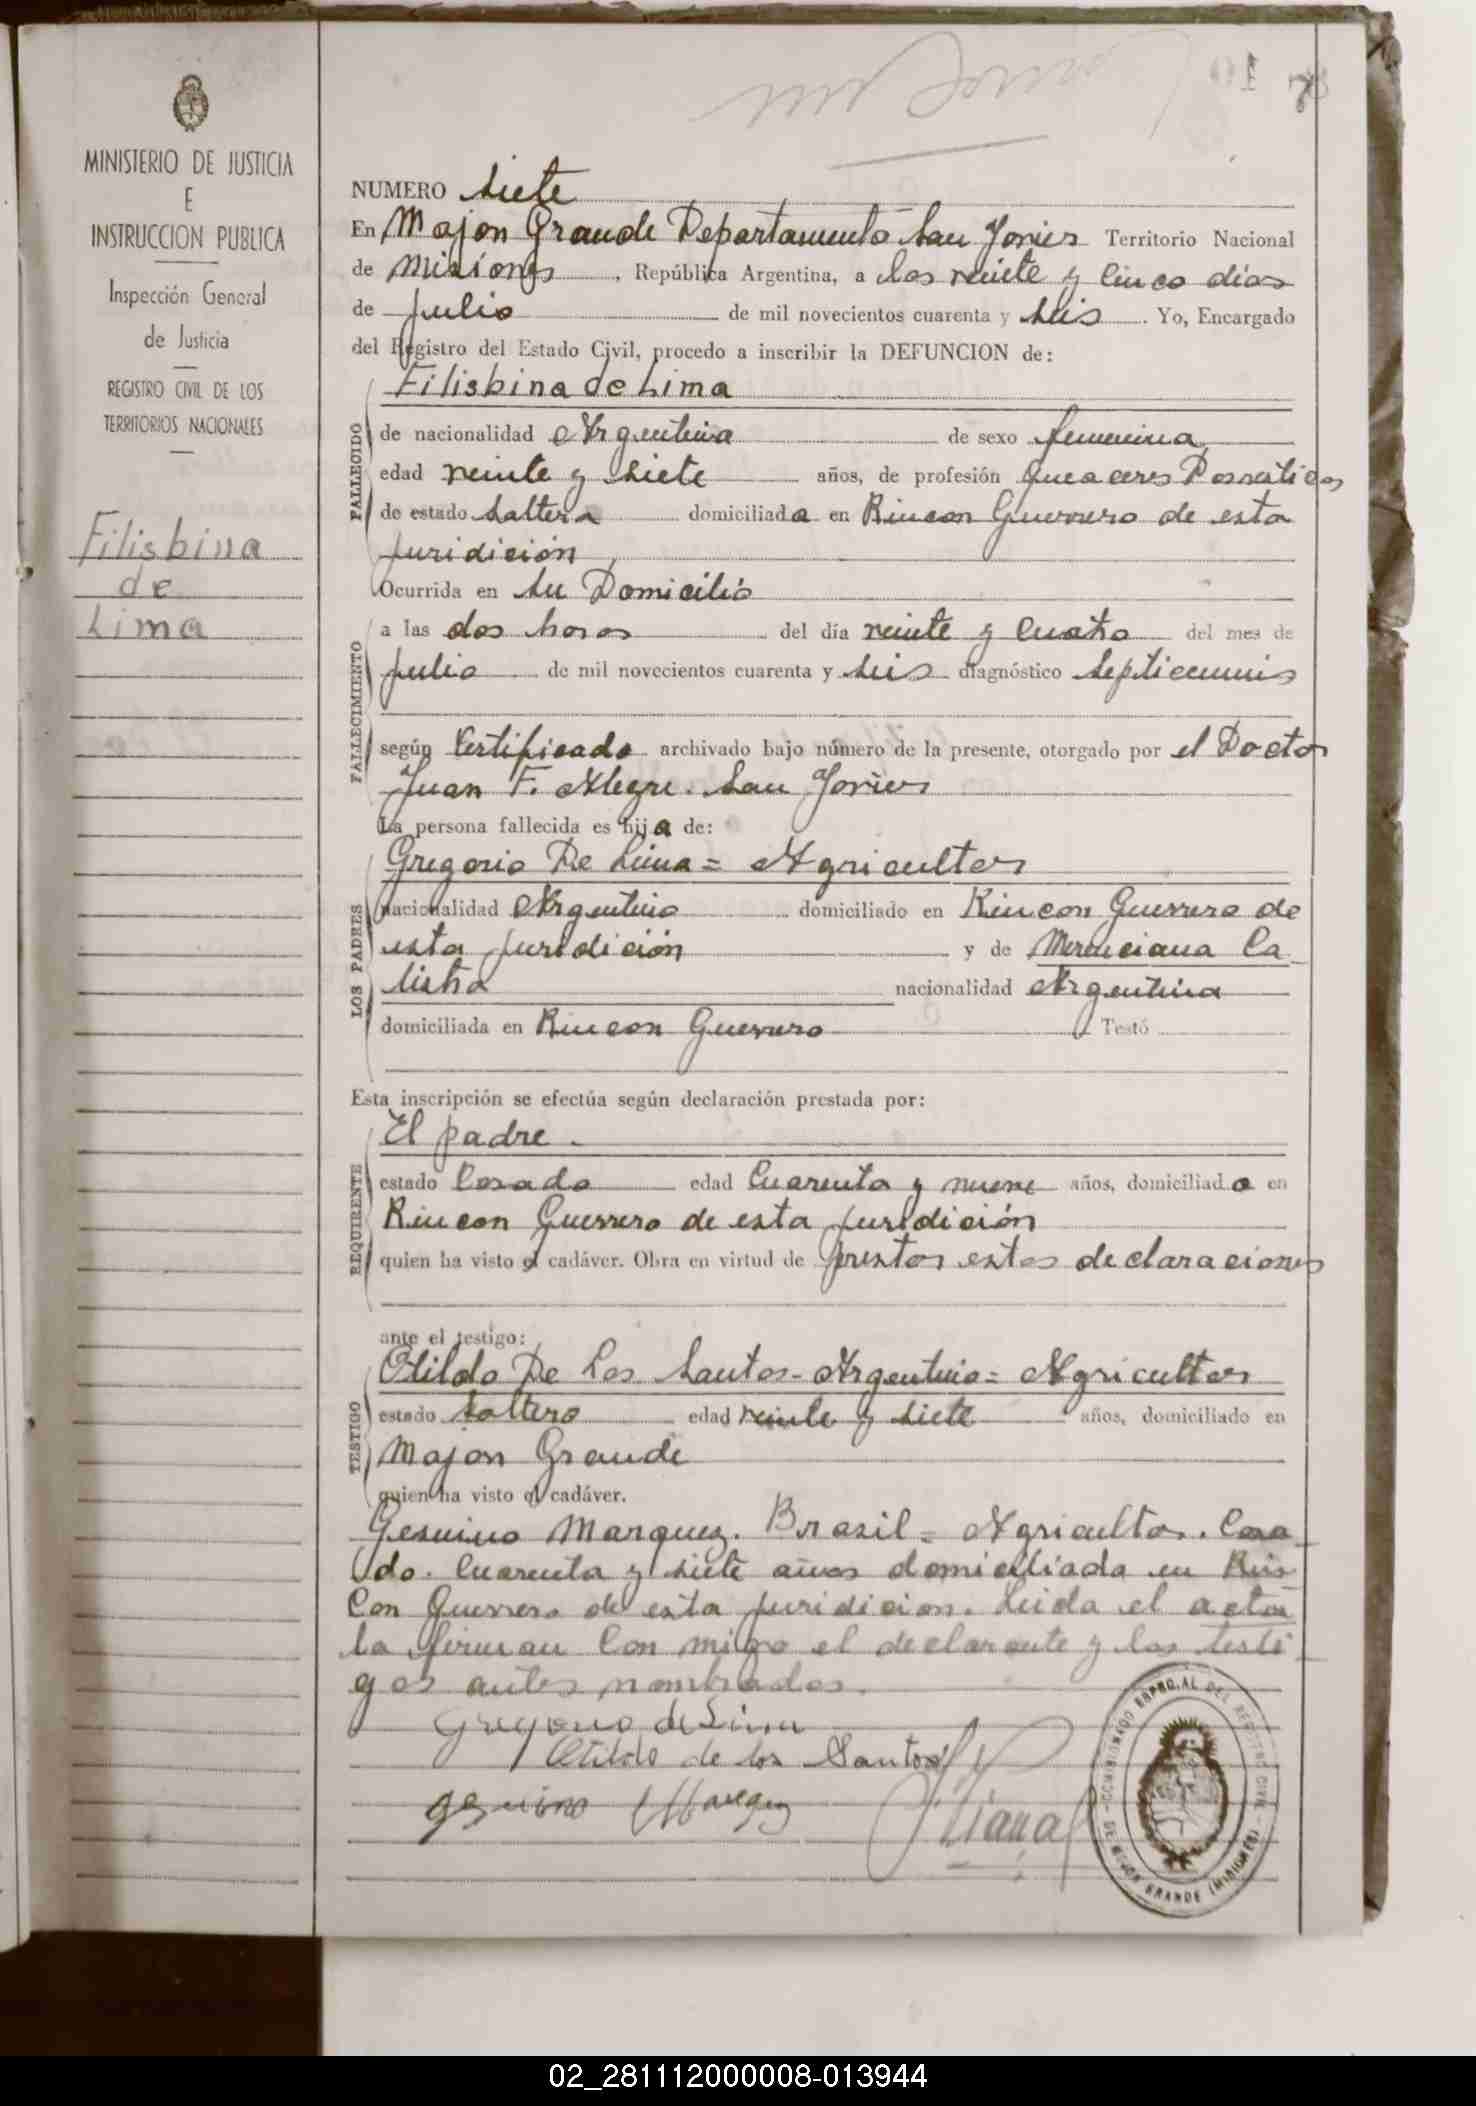 MINISTERIO DE JUSTICIA
E
INSTRUCCION PUBLICA
Inspección General
de Justicia
REGISTRO CIVIL DE LOS
TERRITORIOS NACIONALES
Filisbina
de
Lima
NUMERO Siete
En Mojon Grande Departamento San Javier Territorio Nacional
de Misiones, República Argentina, a los veinte y cinco días
de julio de mil novecientos cuarenta y seis. Yo, Encargado
del Registro del Estado Civil, procedo a inscribir la DEFUNCION de:
Filisbina de Lima
FALLECIDO
de nacionalidad Argentina de sexo femenina
edad veinte y siete años, de profesión Domésticos
de estado Soltera domiciliada en Rincon Guerrero de esta
juridición
FALLECIMIENTO
Ocurrida en su Domicilio
a las dos horas del día veinte y cuatro del mes de
julio de mil novecientos cuarenta y seis diagnóstico
según Certificado archivado bajo número de la presente, otorgado por el Doctor
Juan F. Alegre. San Javier
La persona fallecida es hija de:
LOS PADRES
Gregorio De Lima = Agricultor
nacionalidad Argentino domiciliado en Rincon Guerrero de
esta juridición y de Merenciana Ca-
listra nacionalidad Argentina
domiciliada en Rincon Guerrero Testó
Esta inscripción se efectúa según declaración prestada por:
REQUIRENTE
El padre.
estado Casado edad Cuarenta y nueve años, domiciliado en
Rincon Guerrero de esta juridición
quien ha visto el cadáver. Obra en virtud de prestar estas declaraciones
ante el testigo:
TESTIGO
Otildo De Los Santos - Argentino = Agricultor
estado Soltero edad veinte y siete años, domiciliado en
Mojon Grande
quien ha visto el cadáver.
Gesuino Marquez. Brasil = Agricultor. Casa-
do. Cuarenta y siete años domiciliada en Rin-
con Guerrero de esta juridicion. Leida el acta
la firman con migo el declarante y los testi-
gos antes nombrados.
Gregorio de Lima
Otildo de los Santos
gesuino Marquez
COMISIONADO ESPEC.AL DEL REGISTRO CIVIL
DE MOJON GRANDE (MISIONES)
02_281112000008-013944